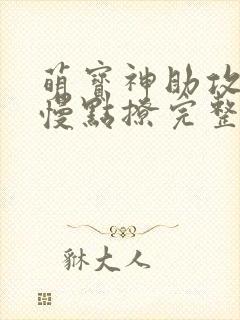 萌寶神助攻
慢點撩完整
貅大人